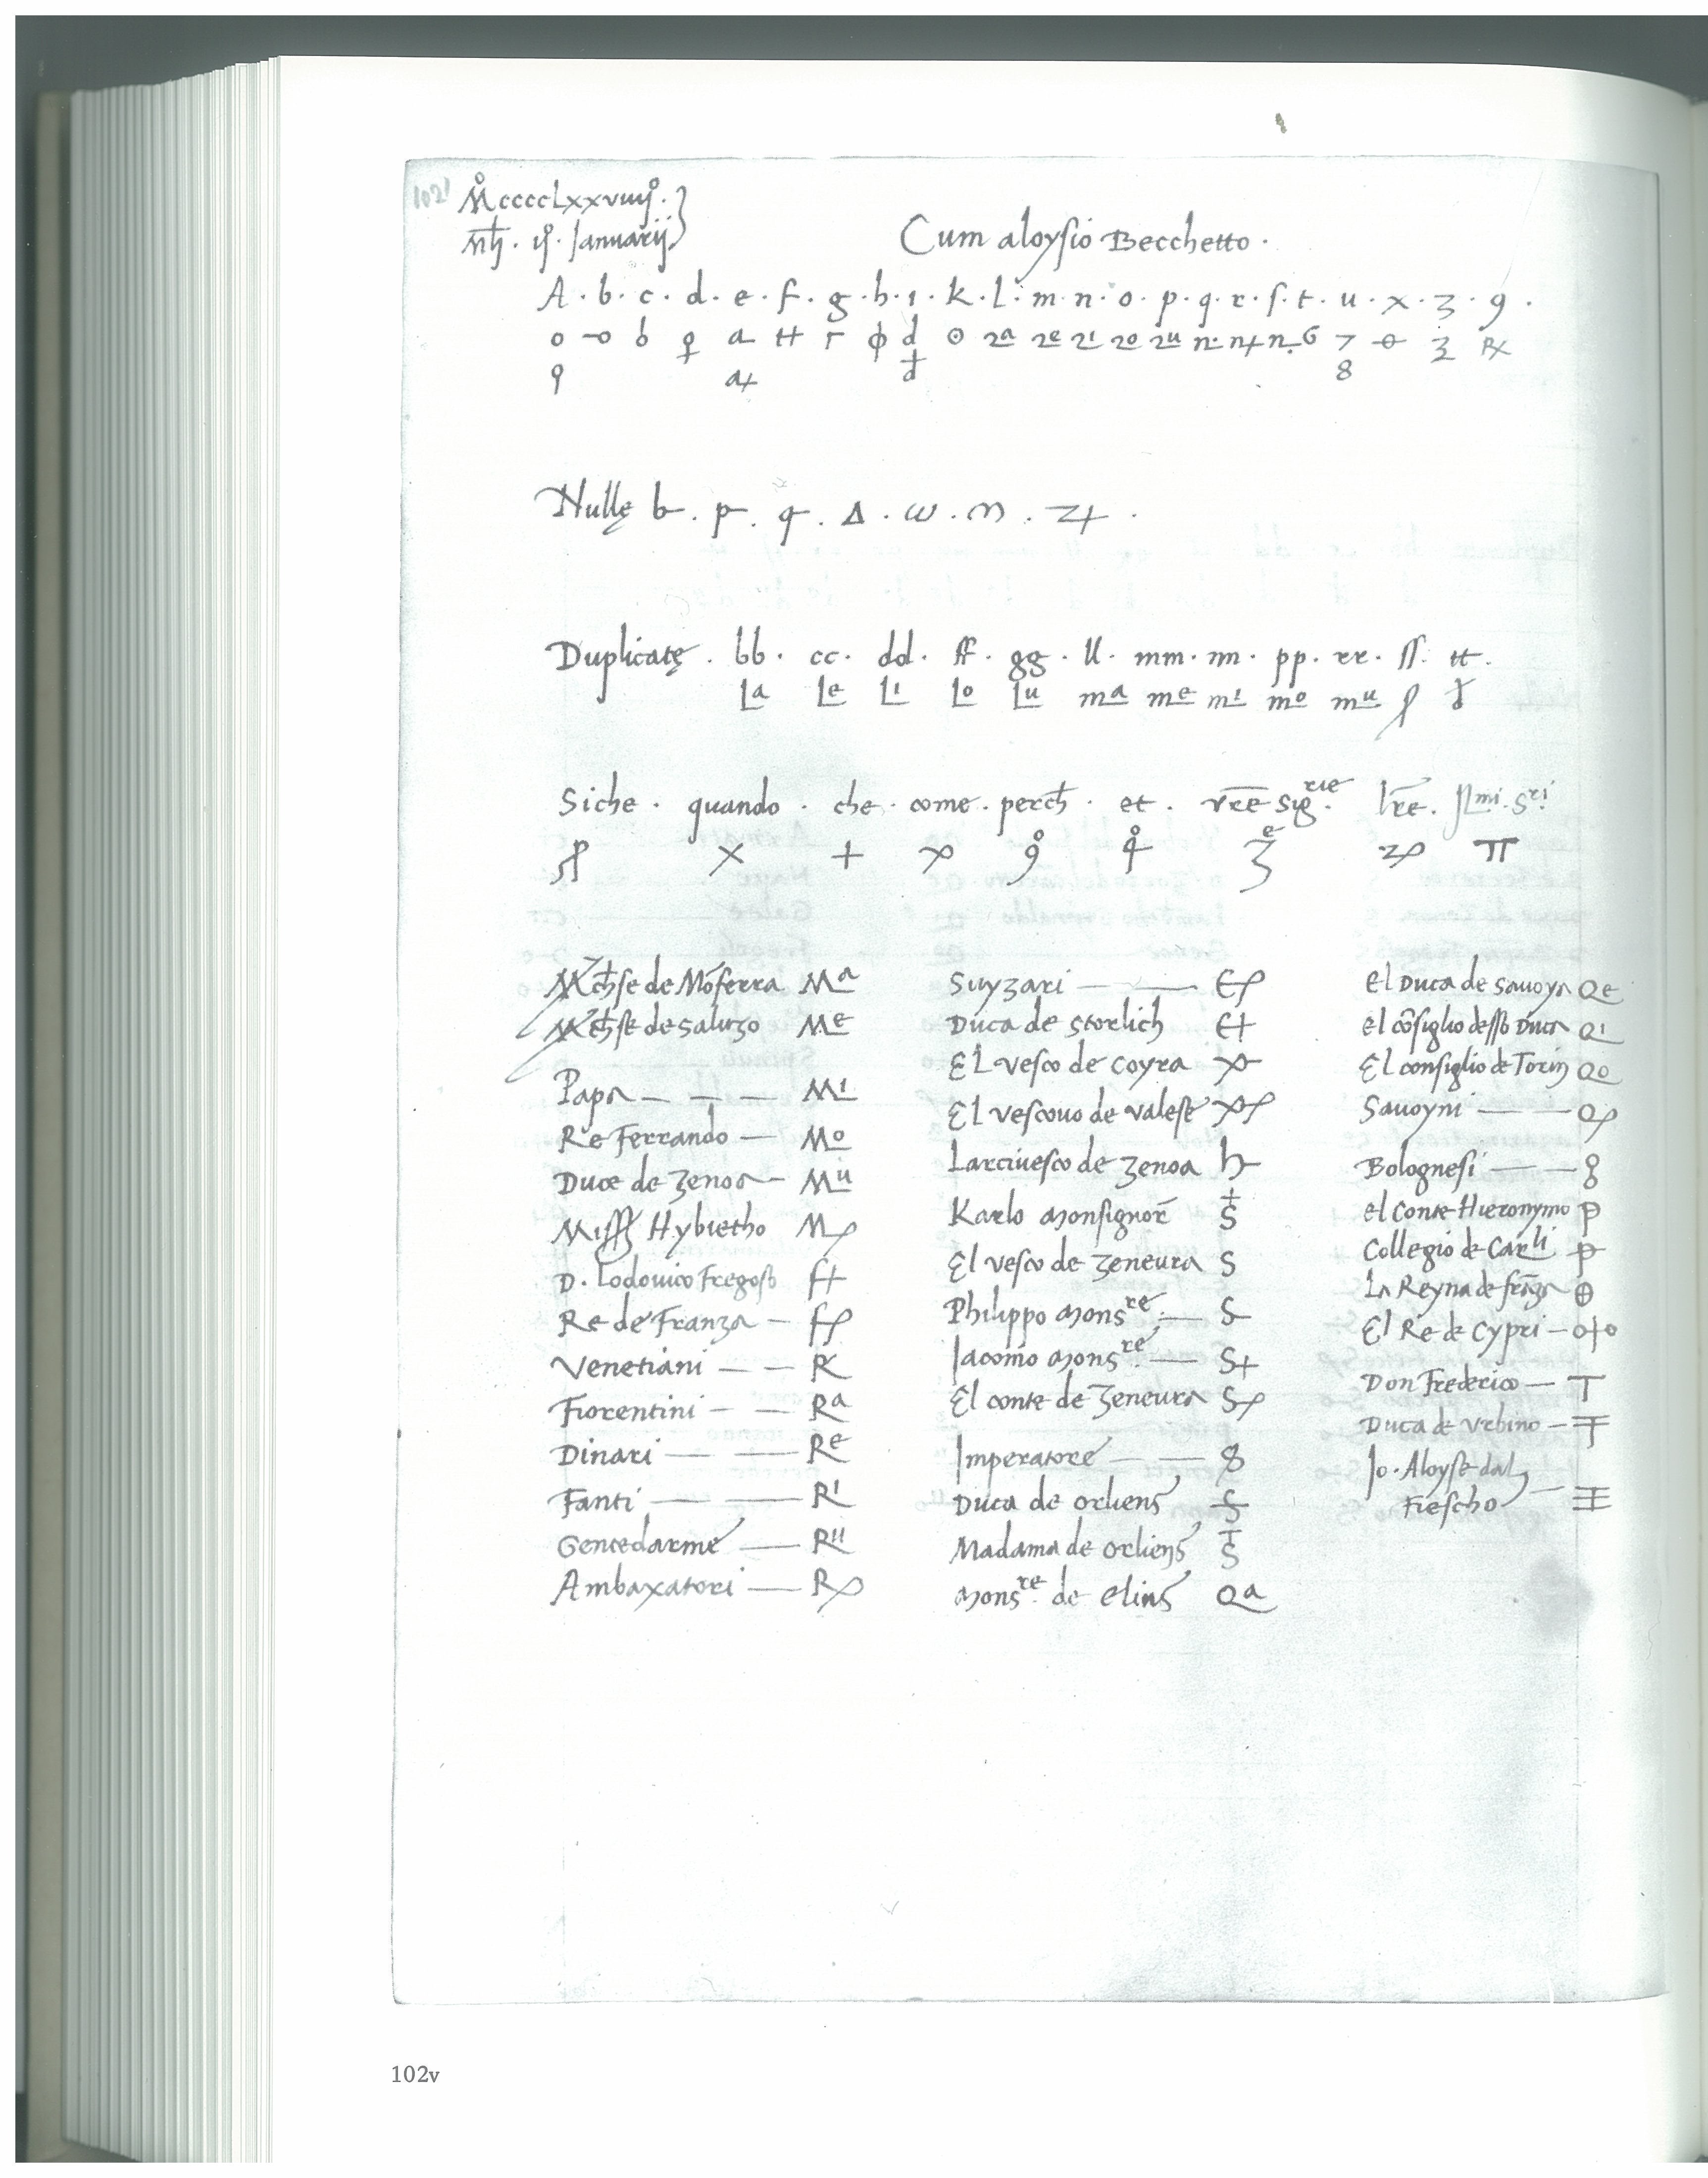 102
Mccccclxxviiij.
Cum aloysio Becchetto.
A. b. c. d. e. f. g. h. i. k. l. m. n. o. p. q. r. s. t. u. x. z. 9.
o b a ⊙ 2a 2e 2i 2o 2u 6 7 3
9 8
Nullę b. p. q. Δ. ω. m.
Duplicatę. bb. cc. dd. ff. gg. ll. mm. nn. pp. rr. ss. tt.
La Le Li Lo Lu ma me mi mo mu
Siche. quando. che. come. perch. et. vre sig.rie lre. Illmi. Sri.
x + π
de Moferra Ma
de saluzo Me
Papa Mi
Re Ferrando Mo
Duce de zenoa Mu
Hybietho M
D. Lodovico Fregoso f+
Re de Franza f
Venetiani R
Fiorentini Ra
Dinari Re
Fanti Ri
Gentedarme Ru
Ambaxatori R
Suyzari E
Duca de Storlich E+
El vesco de coyra
El vescovo de valese
Larcivesco de zenoa h
Karlo monsignor S
El vesco de zeneura S
Philippo monsre. S
Iacomo monsre. S+
El conte de zeneura S
Imperatore 8
Duca de orliens S
Madama de orliens S
monsre. de elins Qa
El Duca de savoya Qe
el cosiglio desso Duca Qi
El consiglio de Torin Qo
Savoyni Q
Bolognesi 8
el conte Hieronymo P
Collegio de Carli p
La Reyna de fraza ⊕
El Re de Cypri o+o
Don Frederico T
Duca de urbino
Jo. Aloyse dal
Fiescho
102v